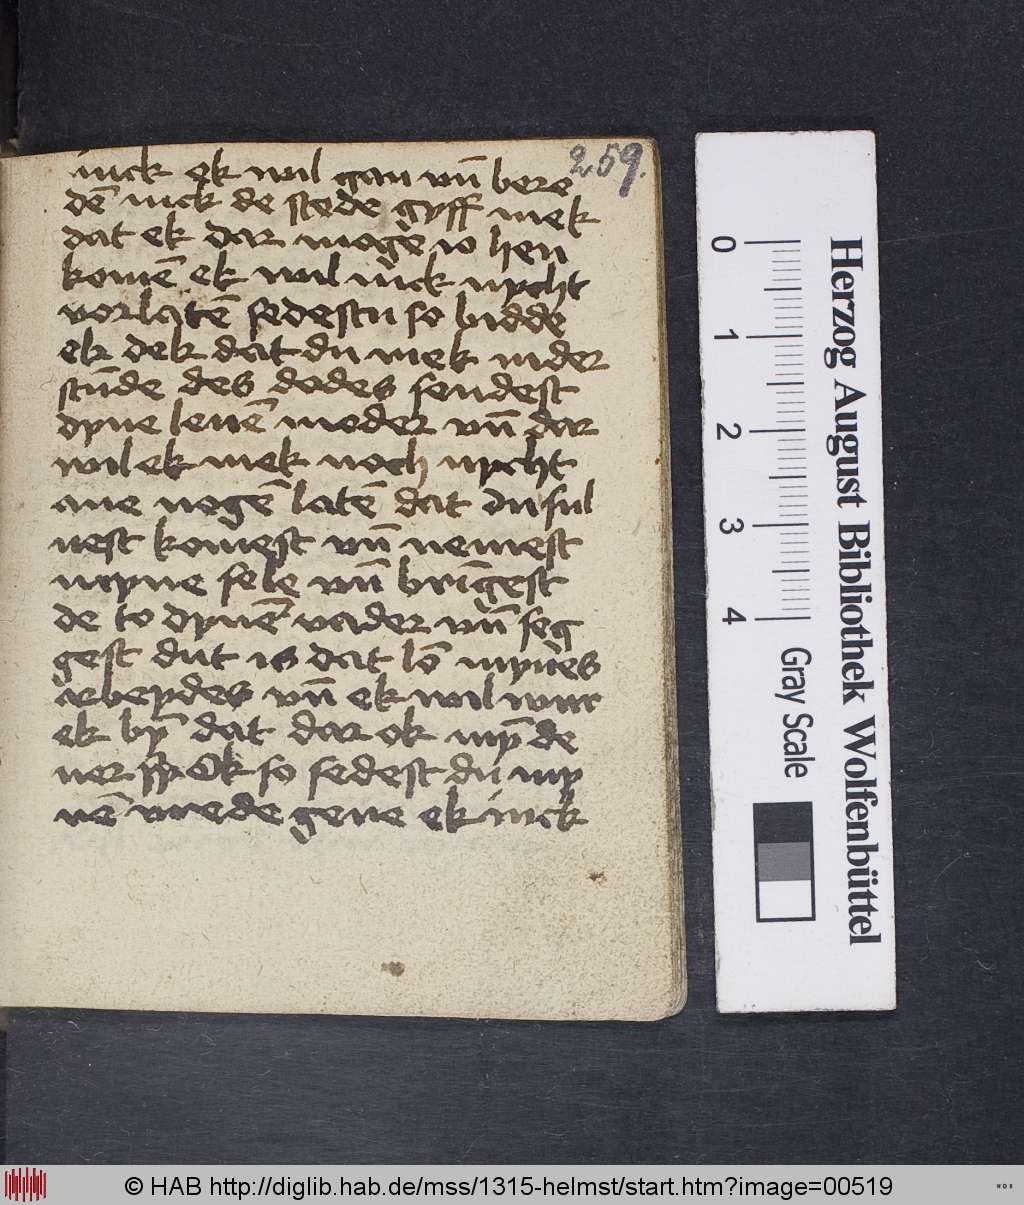 259.
juck ek wil gan vn̄ bere
dē juck de stede gyff mek
dat ek dar mogē jo hen
komē ek wil juck nycht
vorlatē sedestu so bidde
ek dek dat du mek in der
stūde des dodes sendest
dyne leuē moder vn̄ dar
wil ek mek noch nycht
ane nogē latē dat du sul
uest komest vn̄ nemest
myne sele vn̄ brīgest
de to dynē vader vn̄ seg
gest dut is dat lō mynes
arbeydes vn̄ ek wil wur
ek by̅ dat dar ok my̅ de
ner sy̅ Ok so sedest du my
nē vrede geue ek juck
0
1
2
3
4
Gray Scale
Herzog August Bibliothek Wolfenbüttel
© HAB http://diglib.hab.de/mss/1315-helmst/start.htm?image=00519